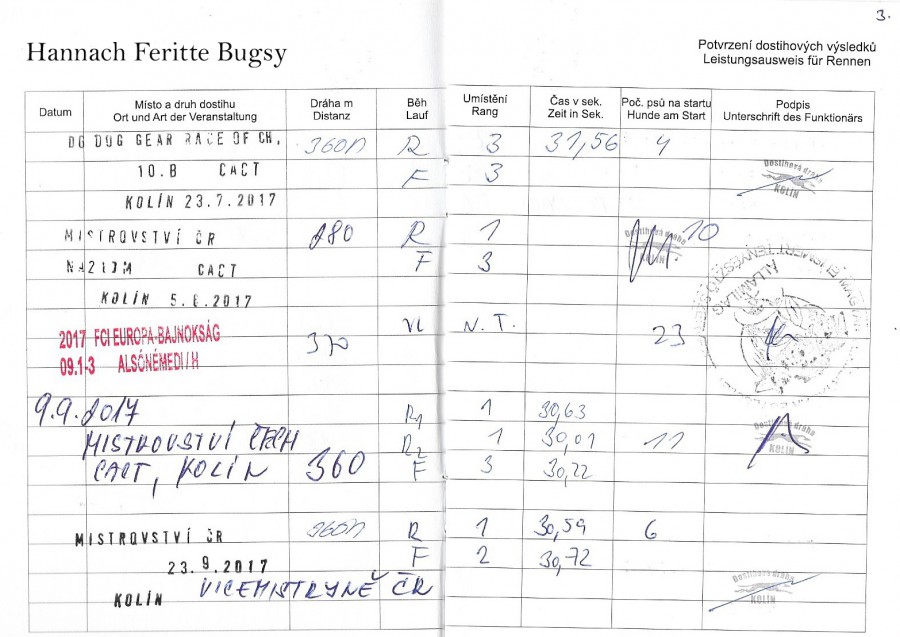 3.
Hannach Feritte Bugsy
Potvrzení dostihových výsledků
Leistungsausweis für Rennen
Datum Místo a druh dostihu Dráha m Běh Umístění Čas v sek. Poč. psů na startu Podpis
Ort und Art der Veranstaltung Distanz Lauf Rang Zeit in Sek. Hunde am Start Unterschrift des Funktionärs
DOG GEAR RACE OF CH, 360m R 3 31,56 4
10.B CACT F 3
Dostihová dráha
KOLÍN
KOLÍN 23.7.2017
MISTROVSTVÍ ČR 280 R 1 10
Dostihová dráha
KOLÍN
CACT F 3
KOLÍN 5.8.2017
2017 FCI EUROPA-BAJNOKSÁG 370 VL N.T. 23
09.1-3 ALSÓNÉMEDI/H
9.9.2017 R1 1 30,63
MISTROVSTVÍ ČECH R2 1 30,01 11
Dostihová dráha
KOLÍN
CACT, KOLÍN 360 F 3 30,22
MISTROVSTVÍ ČR 360m R 1 30,59 6
23.9.2017 F 2 30,72
KOLÍN VICEMISTRYNĚ ČR
Dostihová dráha
KOLÍN